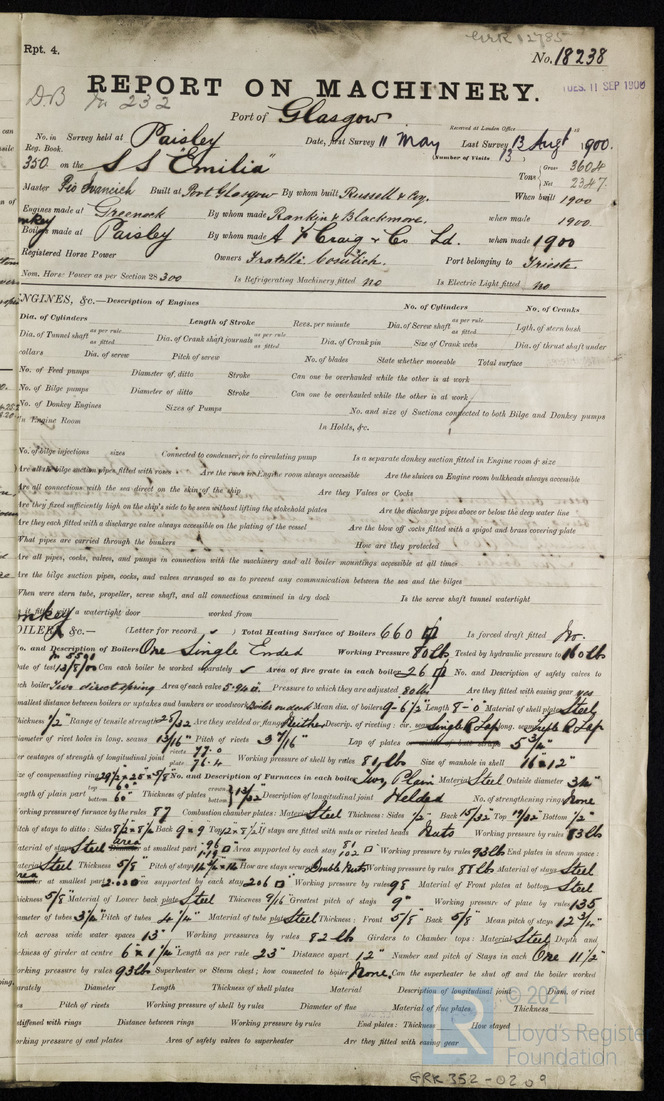 GRK 12785
Rpt. 4.
No. 18238
REPORT ON MACHINERY.
TUES. 11 SEP 1900
Port of Glasgow
Received at London Office
No. in Survey held at Paisley Date, first Survey 11 May Last Survey 13 Augt 1900.
Reg. Book. (Number of Visits 13)
350 on the SS "Emilia" Tons Gross 3604 Net 2347
Master Built at Port Glasgow By whom built Russell & Coy. When built 1900
Engines made at Greenock By whom made Rankin & Blackmore. when made 1900
Boilers made at Paisley By whom made A F Craig & Co Ld. when made 1900
Registered Horse Power Owners Fratelli Cosulich. Port belonging to Trieste.
Nom. Horse Power as per Section 28 300 Is Refrigerating Machinery fitted no Is Electric Light fitted no
ENGINES, &c.—Description of Engines No. of Cylinders No. of Cranks
Dia. of Cylinders Length of Stroke Revs. per minute Dia. of Screw shaft as per rule as fitted Lgth. of stern bush
Dia. of Tunnel shaft as per rule as fitted Dia. of Crank shaft journals as per rule as fitted Dia. of Crank pin Size of Crank webs Dia. of thrust shaft under
collars Dia. of screw Pitch of screw No. of blades State whether moveable Total surface
No. of Feed pumps Diameter of ditto Stroke Can one be overhauled while the other is at work
No. of Bilge pumps Diameter of ditto Stroke Can one be overhauled while the other is at work
No. of Donkey Engines Sizes of Pumps No. and size of Suctions connected to both Bilge and Donkey pumps
In Engine Room In Holds, &c.
No. of bilge injections sizes Connected to condenser, or to circulating pump Is a separate donkey suction fitted in Engine room & size
Are all the bilge suction pipes fitted with roses Are the roses in Engine room always accessible Are the sluices on Engine room bulkheads always accessible
Are all connections with the sea direct on the skin of the ship Are they Valves or Cocks
Are they fixed sufficiently high on the ship's side to be seen without lifting the stokehold plates Are the discharge pipes above or below the deep water line
Are they each fitted with a discharge valve always accessible on the plating of the vessel Are the blow off cocks fitted with a spigot and brass covering plate
What pipes are carried through the bunkers How are they protected
Are all pipes, cocks, valves, and pumps in connection with the machinery and all boiler mountings accessible at all times
Are the bilge suction pipes, cocks, and valves arranged so as to prevent any communication between the sea and the bilges
When were stern tube, propeller, screw shaft, and all connections examined in dry dock Is the screw shaft tunnel watertight
Is it fitted with a watertight door worked from
BOILERS, &c.— (Letter for record ) Total Heating Surface of Boilers 660 Is forced draft fitted No.
No. and Description of Boilers One Single Ended Working Pressure 80 lb Tested by hydraulic pressure to 160 lb
Date of test 13/8/00 Can each boiler be worked separately Area of fire grate in each boiler 26 No. and Description of safety valves to
each boiler Two direct spring Area of each valve 5.94 Pressure to which they are adjusted 80 lb Are they fitted with easing gear yes
Smallest distance between boilers or uptakes and bunkers or woodwork Mean dia. of boilers 9-6 1/2" Length 8-0" Material of shell plates Steel
Thickness 1/2" Range of tensile strength 28/32 Are they welded or flanged Neither Descrip. of riveting: cir. seams Single R Lap long. seams Treble R Lap
Diameter of rivet holes in long. seams 13/16" Pitch of rivets 3 7/16" Lap of plates 5 3/4"
Per centages of strength of longitudinal joint rivets 77.0 plate 76.4 Working pressure of shell by rules 81 lb Size of manhole in shell 16"x12"
Size of compensating ring 29 1/2"x25"x5/8" No. and Description of Furnaces in each boiler Two, Plain Material Steel Outside diameter
Length of plain part top 60" bottom 60" Thickness of plates crown bottom 13/32 Description of longitudinal joint Welded No. of strengthening rings None
Working pressure of furnace by the rules 87 Combustion chamber plates: Material Steel Thickness: Sides 1/2" Back 15/32 Top 17/32 Bottom 1/2"
Pitch of stays to ditto: Sides 8 1/2 x 8 1/2 Back 9x9 Top 12x8 1/2 If stays are fitted with nuts or riveted heads Nuts Working pressure by rules 83 lb
Material of stays Steel at smallest part .96 1.18 Area supported by each stay 81 102 Working pressure by rules 93 lb End plates in steam space:
Material Steel Thickness 5/8" Pitch of stays How are stays secured Double Nuts Working pressure by rules 88 lb Material of stays Steel
Area at smallest part 2.030 Area supported by each stay 206 Working pressure by rules 98 Material of Front plates at bottom Steel
Thickness 5/8" Material of Lower back plate Steel Thickness 9/16" Greatest pitch of stays 9" Working pressure of plate by rules 135
Diameter of tubes 3 1/4" Pitch of tubes 4 1/4" Material of tube plates Steel Thickness: Front 5/8" Back 5/8" Mean pitch of stays 12 3/4"
Pitch across wide water spaces 13" Working pressures by rules 82 lb Girders to Chamber tops: Material Steel Depth and
thickness of girder at centre 6"x1 1/4" Length as per rule 23" Distance apart 12" Number and pitch of Stays in each One 11 1/2"
Working pressure by rules 93 lb Superheater or Steam chest; how connected to boiler None. Can the superheater be shut off and the boiler worked
separately Diameter Length Thickness of shell plates Material Description of longitudinal joint Diam. of rivet
holes Pitch of rivets Working pressure of shell by rules Diameter of flue Material of flue plates Thickness
If stiffened with rings Distance between rings Working pressure by rules End plates: Thickness How stayed
Working pressure of end plates Area of safety valves to superheater Are they fitted with easing gear
© 2021
LR
Lloyd's Register
Foundation
GRK 352-0209